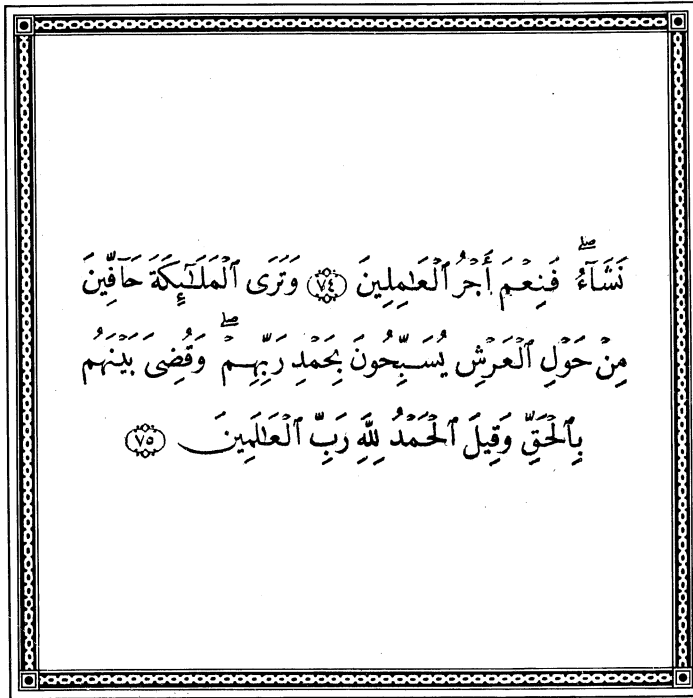 نَشَآءُ ۖ فَنِعْمَ أَجْرُ ٱلْعَـٰمِلِينَ ﴿٧٤﴾ وَتَرَى ٱلْمَلَـٰٓئِكَةَ حَآفِّينَ
مِنْ حَوْلِ ٱلْعَرْشِ يُسَبِّحُونَ بِحَمْدِ رَبِّهِمْ ۖ وَقُضِىَ بَيْنَهُم
بِٱلْحَقِّ وَقِيلَ ٱلْحَمْدُ لِلَّهِ رَبِّ ٱلْعَـٰلَمِينَ ﴿٧٥﴾